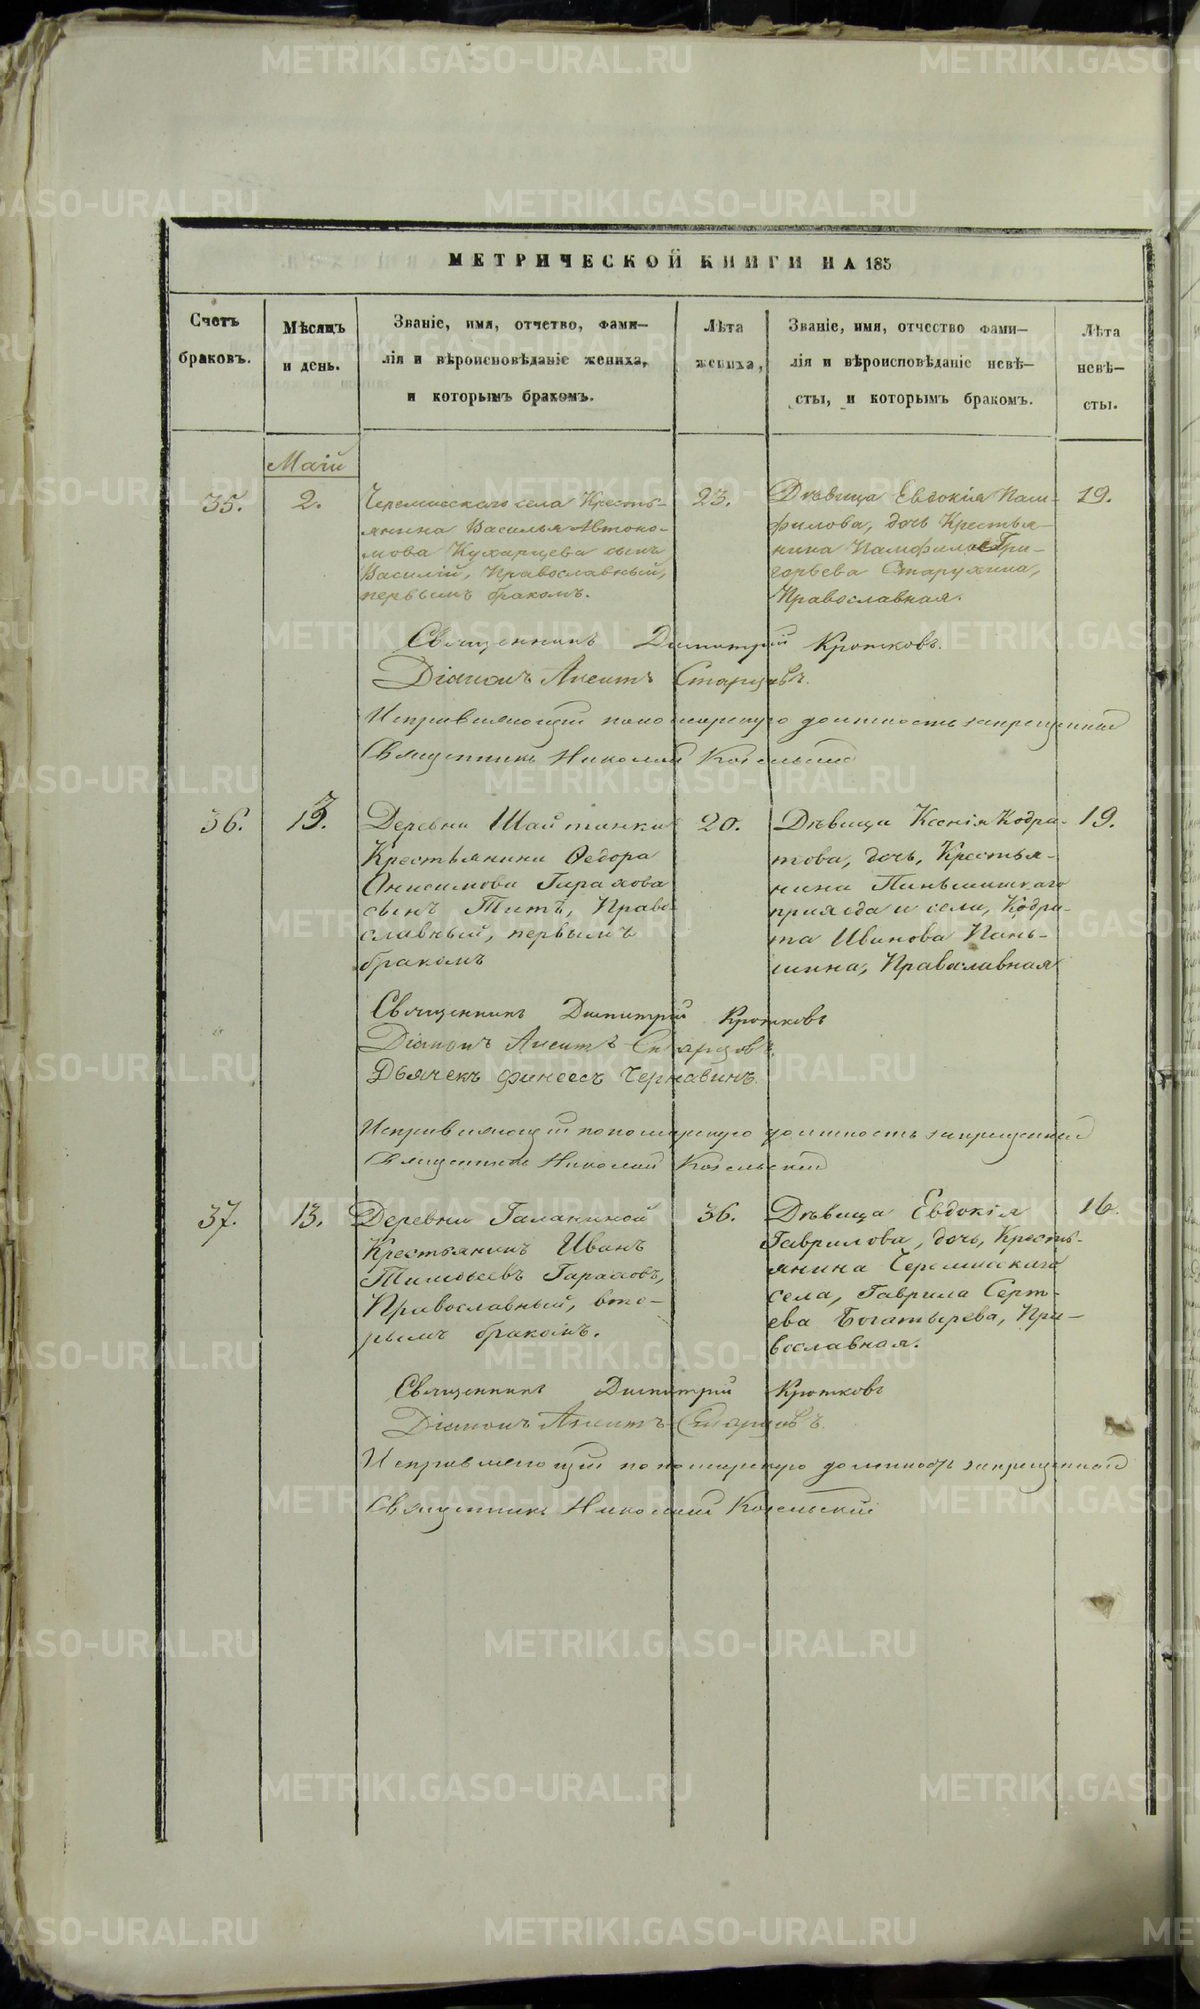 МЕТРИЧЕСКОЙ КНИГИ НА 185
Счетъ
браковъ.
Мѣсяцъ
и день.
Званіе, имя, отчетво, фами—
лія и вѣроисповѣданіе жениха,
и которымъ бракомъ.
Лѣта
жениха,
Званіе, имя, отчество фами—
лія и вѣроисповѣданіе невѣ—
сты, и которымъ бракомъ.
Лѣта
невѣ—
сты.
Маія
35.
2.
Черемисскаго села Кресть-
янина Василья Автоно-
мова Кухарцева сынъ
Василій, Православный,
первымъ бракомъ.
23.
Дѣвица Евдокія Пам-
филова, дочь Крестья-
нина Памфила Гри-
горьева Старухина,
Православная.
19.
Священникъ Димитрій Кротковъ.
Діаконъ Акситъ Старцовъ.
Исправляющій пономарскую должность запрещенный
Священникъ Николай Козельскій
36.
13.
Деревни Шайтанки
Крестьянина Ѳедора
Онисимова Гарахова
сынъ Титъ, Право-
славный, первымъ
бракомъ
20.
Дѣвица Ксенія Кодра-
това, дочь, Крестья-
нина
села, Кодра-
та Иванова Пань-
шина, Православная
19.
Священникъ Димитрій Кротковъ
Діаконъ Акситъ Старцовъ
Дьячекъ Финеесъ Чернавинъ.
Исправляющій пономарскую должность запрещенный
Священникъ Николай Козельскій
37.
13.
Деревни Галаниной
Крестьянинъ Иванъ
Тимоѳеевъ Гараховъ,
Православный, вто-
рымъ бракомъ.
36.
Дѣвица Евдокія
Гаврилова, дочь, Кресть-
янина Черемисскаго
села, Гаврила Серги-
ева Богатырева, Пра-
вославная.
16.
Священникъ Димитрій Кротковъ
Діаконъ Акситъ Старцовъ.
Исправляющій пономарскую должность запрещенный
Священникъ Николай Козельскій
METRIKI.GASO-URAL.RU